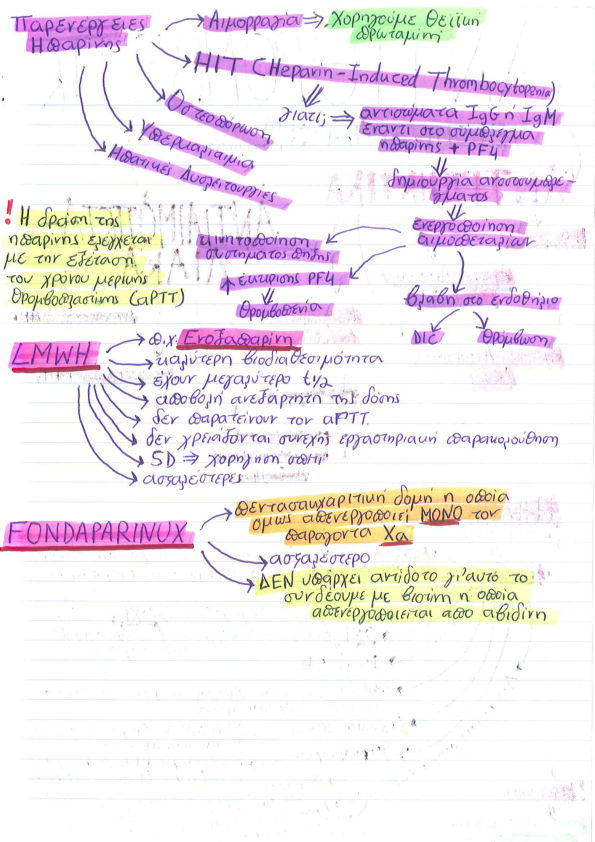 Παρενέργειες
Ηπαρίνης
Αιμορραγία ⇒ Χορηγούμε θειϊκή
πρωταμίνη
HIT (Heparin-Induced Thrombocytopenia)
γιατί; ⇒ αντισώματα IgG ή IgM
έναντι στο σύμπλεγμα
ηπαρίνης + PF4
Οστεοπόρωση
Υπερκαλιαιμία
Ηπατικές Δυσλειτουργίες
δημιουργία ανοσοσυμπλέ-
γματος
ενεργοποίηση
αιμοπεταλίων
κινητοποίηση
συστήματος πήξης
↑ έκκρισης PF4
Θρομβοπενία
βλάβη στο ενδοθήλιο
DIC
θρόμβωση
! Η δράση της
ηπαρίνης ελέγχεται
με την εξέταση
του χρόνου μερικής
θρομβοπλαστίνης (aPTT)
LMWH
π.χ. Ενοξαπαρίνη
καλύτερη βιοδιαθεσιμότητα
έχουν μεγαλύτερο t1/2
αποβολή ανεξάρτητη της δόσης
δεν παρατείνουν τον aPTT
δεν χρειάζονται συνεχής εργαστηριακή παρακολούθηση
SD ⇒ χορήγηση σπίτι
ασφαλέστερες
FONDAPARINUX
πεντασακχαριτική δομή η οποία
όμως απενεργοποιεί ΜΟΝΟ τον
παράγοντα Xa
ασφαλέστερο
ΔΕΝ υπάρχει αντίδοτο γι'αυτό το
συνδέουμε με βιοτίνη η οποία
απενεργοποιείται από αβιδίνη